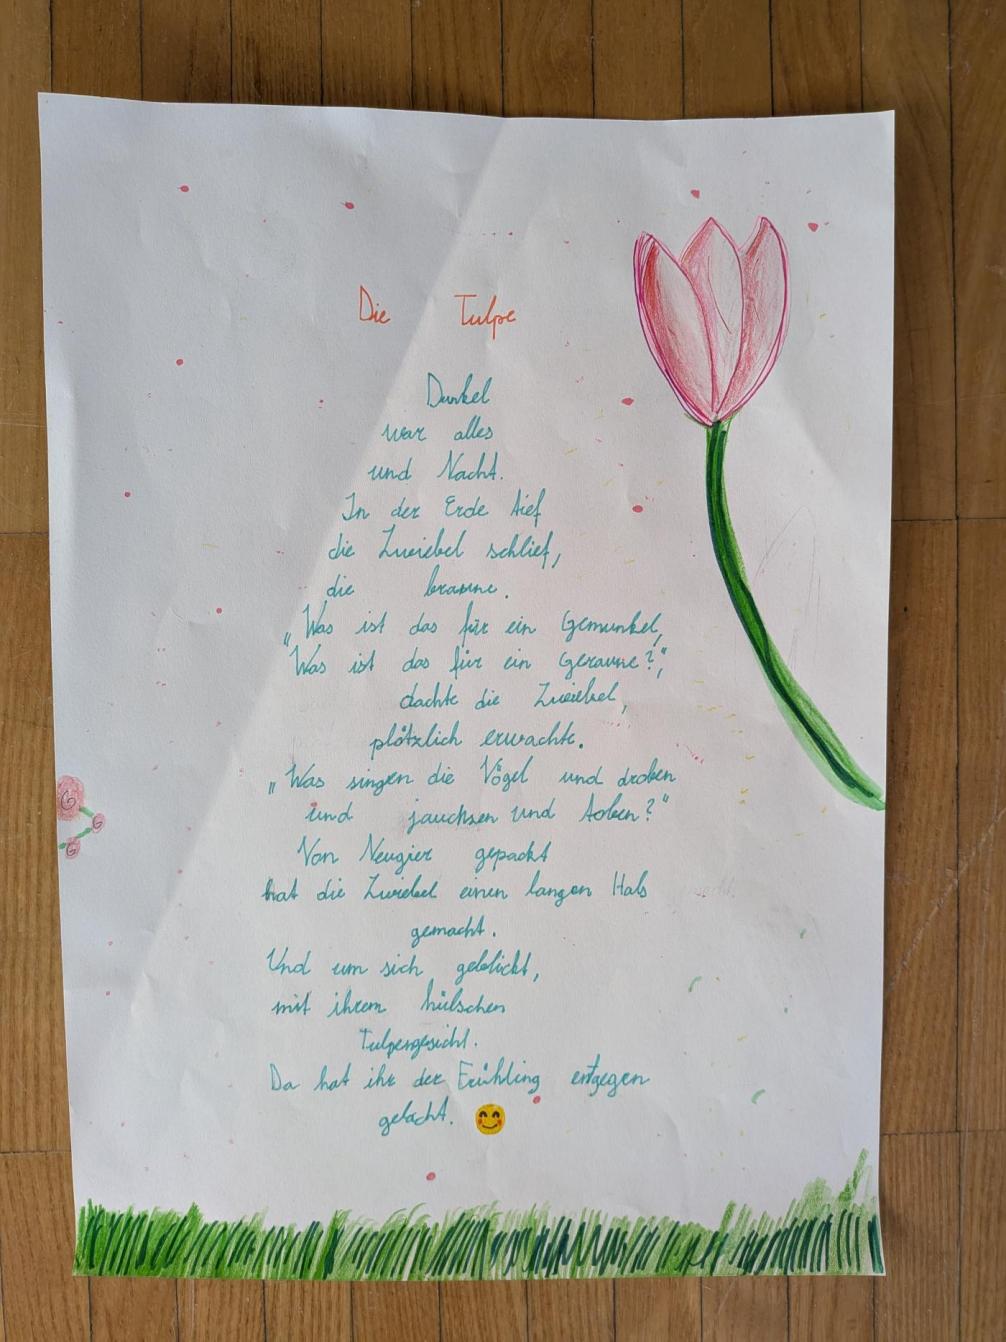 Die Tulpe
Dunkel
war alles
und Nacht.
In der Erde tief
die Zwiebel schlief,
die braune.
„Was ist das für ein Gemunkel,
"Was ist das für ein Geraune?",
dachte die Zwiebel,
plötzlich erwacht.
„Was singen die Vögel und droben
und jauchsen und toben?"
Von Neugier gepackt
hat die Zwiebel einen langen Hals
gemacht.
Und um sich geblickt,
mit ihrem hübschen
Tulpengesicht.
Da hat ihr der Frühling entgegen
gelacht.